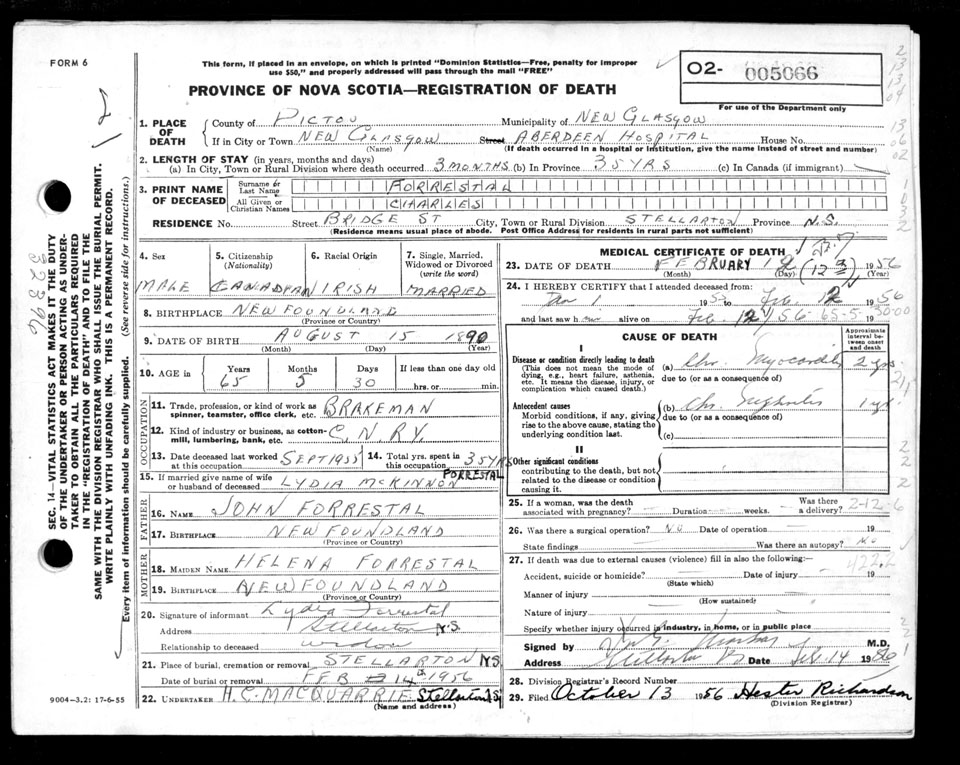 FORM 6
This form, if placed in an envelope, on which is printed "Dominion Statistics—Free, penalty for improper
use $50," and properly addressed will pass through the mail "FREE"
PROVINCE OF NOVA SCOTIA—REGISTRATION OF DEATH
O2- 005066
For use of the Department only
1. PLACE OF DEATH
County of PICTOU Municipality of NEW GLASGOW
If in City or Town NEW GLASGOW Street ABERDEEN HOSPITAL House No.
(Name) (If death occurred in a hospital or institution, give the name instead of street and number)
2. LENGTH OF STAY (in years, months and days)
(a) In City, Town or Rural Division where death occurred 3 MONTHS (b) In Province 35 YRS (c) In Canada (if immigrant)
3. PRINT NAME OF DECEASED
Surname or Last Name FORRESTAL
All Given or Christian Names CHARLES
RESIDENCE No. Street BRIDGE ST City, Town or Rural Division STELLARTON Province N.S.
(Residence means usual place of abode. Post Office Address for residents in rural parts not sufficient)
4. Sex 5. Citizenship (Nationality) 6. Racial Origin 7. Single, Married, Widowed or Divorced (write the word)
MALE CANADIAN IRISH MARRIED
8. BIRTHPLACE NEWFOUNDLAND
(Province or Country)
9. DATE OF BIRTH AUGUST 15 1890
(Month) (Day) (Year)
10. AGE in Years Months Days If less than one day old
65 5 30 hrs. or min.
OCCUPATION
11. Trade, profession, or kind of work as spinner, teamster, office clerk, etc. BRAKEMAN
12. Kind of industry or business, as cotton-mill, lumbering, bank, etc. C.N.RY.
13. Date deceased last worked at this occupation SEPT 1955 14. Total yrs. spent in this occupation 35 YRS
15. If married give name of wife or husband of deceased LYDIA McKINNON FORRESTAL
FATHER
16. NAME JOHN FORRESTAL
17. BIRTHPLACE NEWFOUNDLAND
(Province or Country)
MOTHER
18. MAIDEN NAME HELENA FORRESTAL
19. BIRTHPLACE NEWFOUNDLAND
(Province or Country)
20. Signature of informant Lydia Forrestal
Address Stellarton N.S.
Relationship to deceased widow
21. Place of burial, cremation or removal STELLARTON N.S.
Date of burial or removal FEB 14th 1956
22. UNDERTAKER H.C. MACQUARRIE Stellarton N.S.
(Name and address)
9004-3.2: 17-6-55
MEDICAL CERTIFICATE OF DEATH
23. DATE OF DEATH FEBRUARY 12 1956
(Month) (Day) (Year)
24. I HEREBY CERTIFY that I attended deceased from:
Jan 1 1955 to Feb. 12 1956
and last saw h alive on Feb. 12 1956
CAUSE OF DEATH
Approximate interval between onset and death
I
Disease or condition directly leading to death
(This does not mean the mode of dying, e.g., heart failure, asthenia, etc. It means the disease, injury, or complication which caused death.)
(a) Chr. Myocarditis 2 yrs
due to (or as a consequence of)
Antecedent causes
Morbid conditions, if any, giving rise to the above cause, stating the underlying condition last.
(b) Chr. Nephritis 1 yr
due to (or as a consequence of)
(c)
II
Other significant conditions
contributing to the death, but not related to the disease or condition causing it.
25. If a woman, was the death associated with pregnancy? Duration weeks. Was there a delivery?
26. Was there a surgical operation? NO Date of operation 19
State findings Was there an autopsy? No
27. If death was due to external causes (violence) fill in also the following:
Accident, suicide or homicide? Date of injury 19
(State which)
Manner of injury
(How sustained)
Nature of injury
Specify whether injury occurred in industry, in home, or in public place
Signed by M.D.
Address Stellarton Date Feb. 14 1956
28. Division Registrar's Record Number
29. Filed October 13 1956 Hester Richardson
(Division Registrar)
SEC. 14—VITAL STATISTICS ACT MAKES IT THE DUTY
OF THE UNDERTAKER OR PERSON ACTING AS UNDER-
TAKER TO OBTAIN ALL THE PARTICULARS REQUIRED
IN THE "REGISTRATION OF DEATH" AND TO FILE THE
SAME WITH THE DIVISION REGISTRAR WHO SHALL ISSUE THE BURIAL PERMIT.
WRITE PLAINLY WITH UNFADING INK. THIS IS A PERMANENT RECORD.
Every item of information should be carefully supplied. (See reverse side for instructions.)